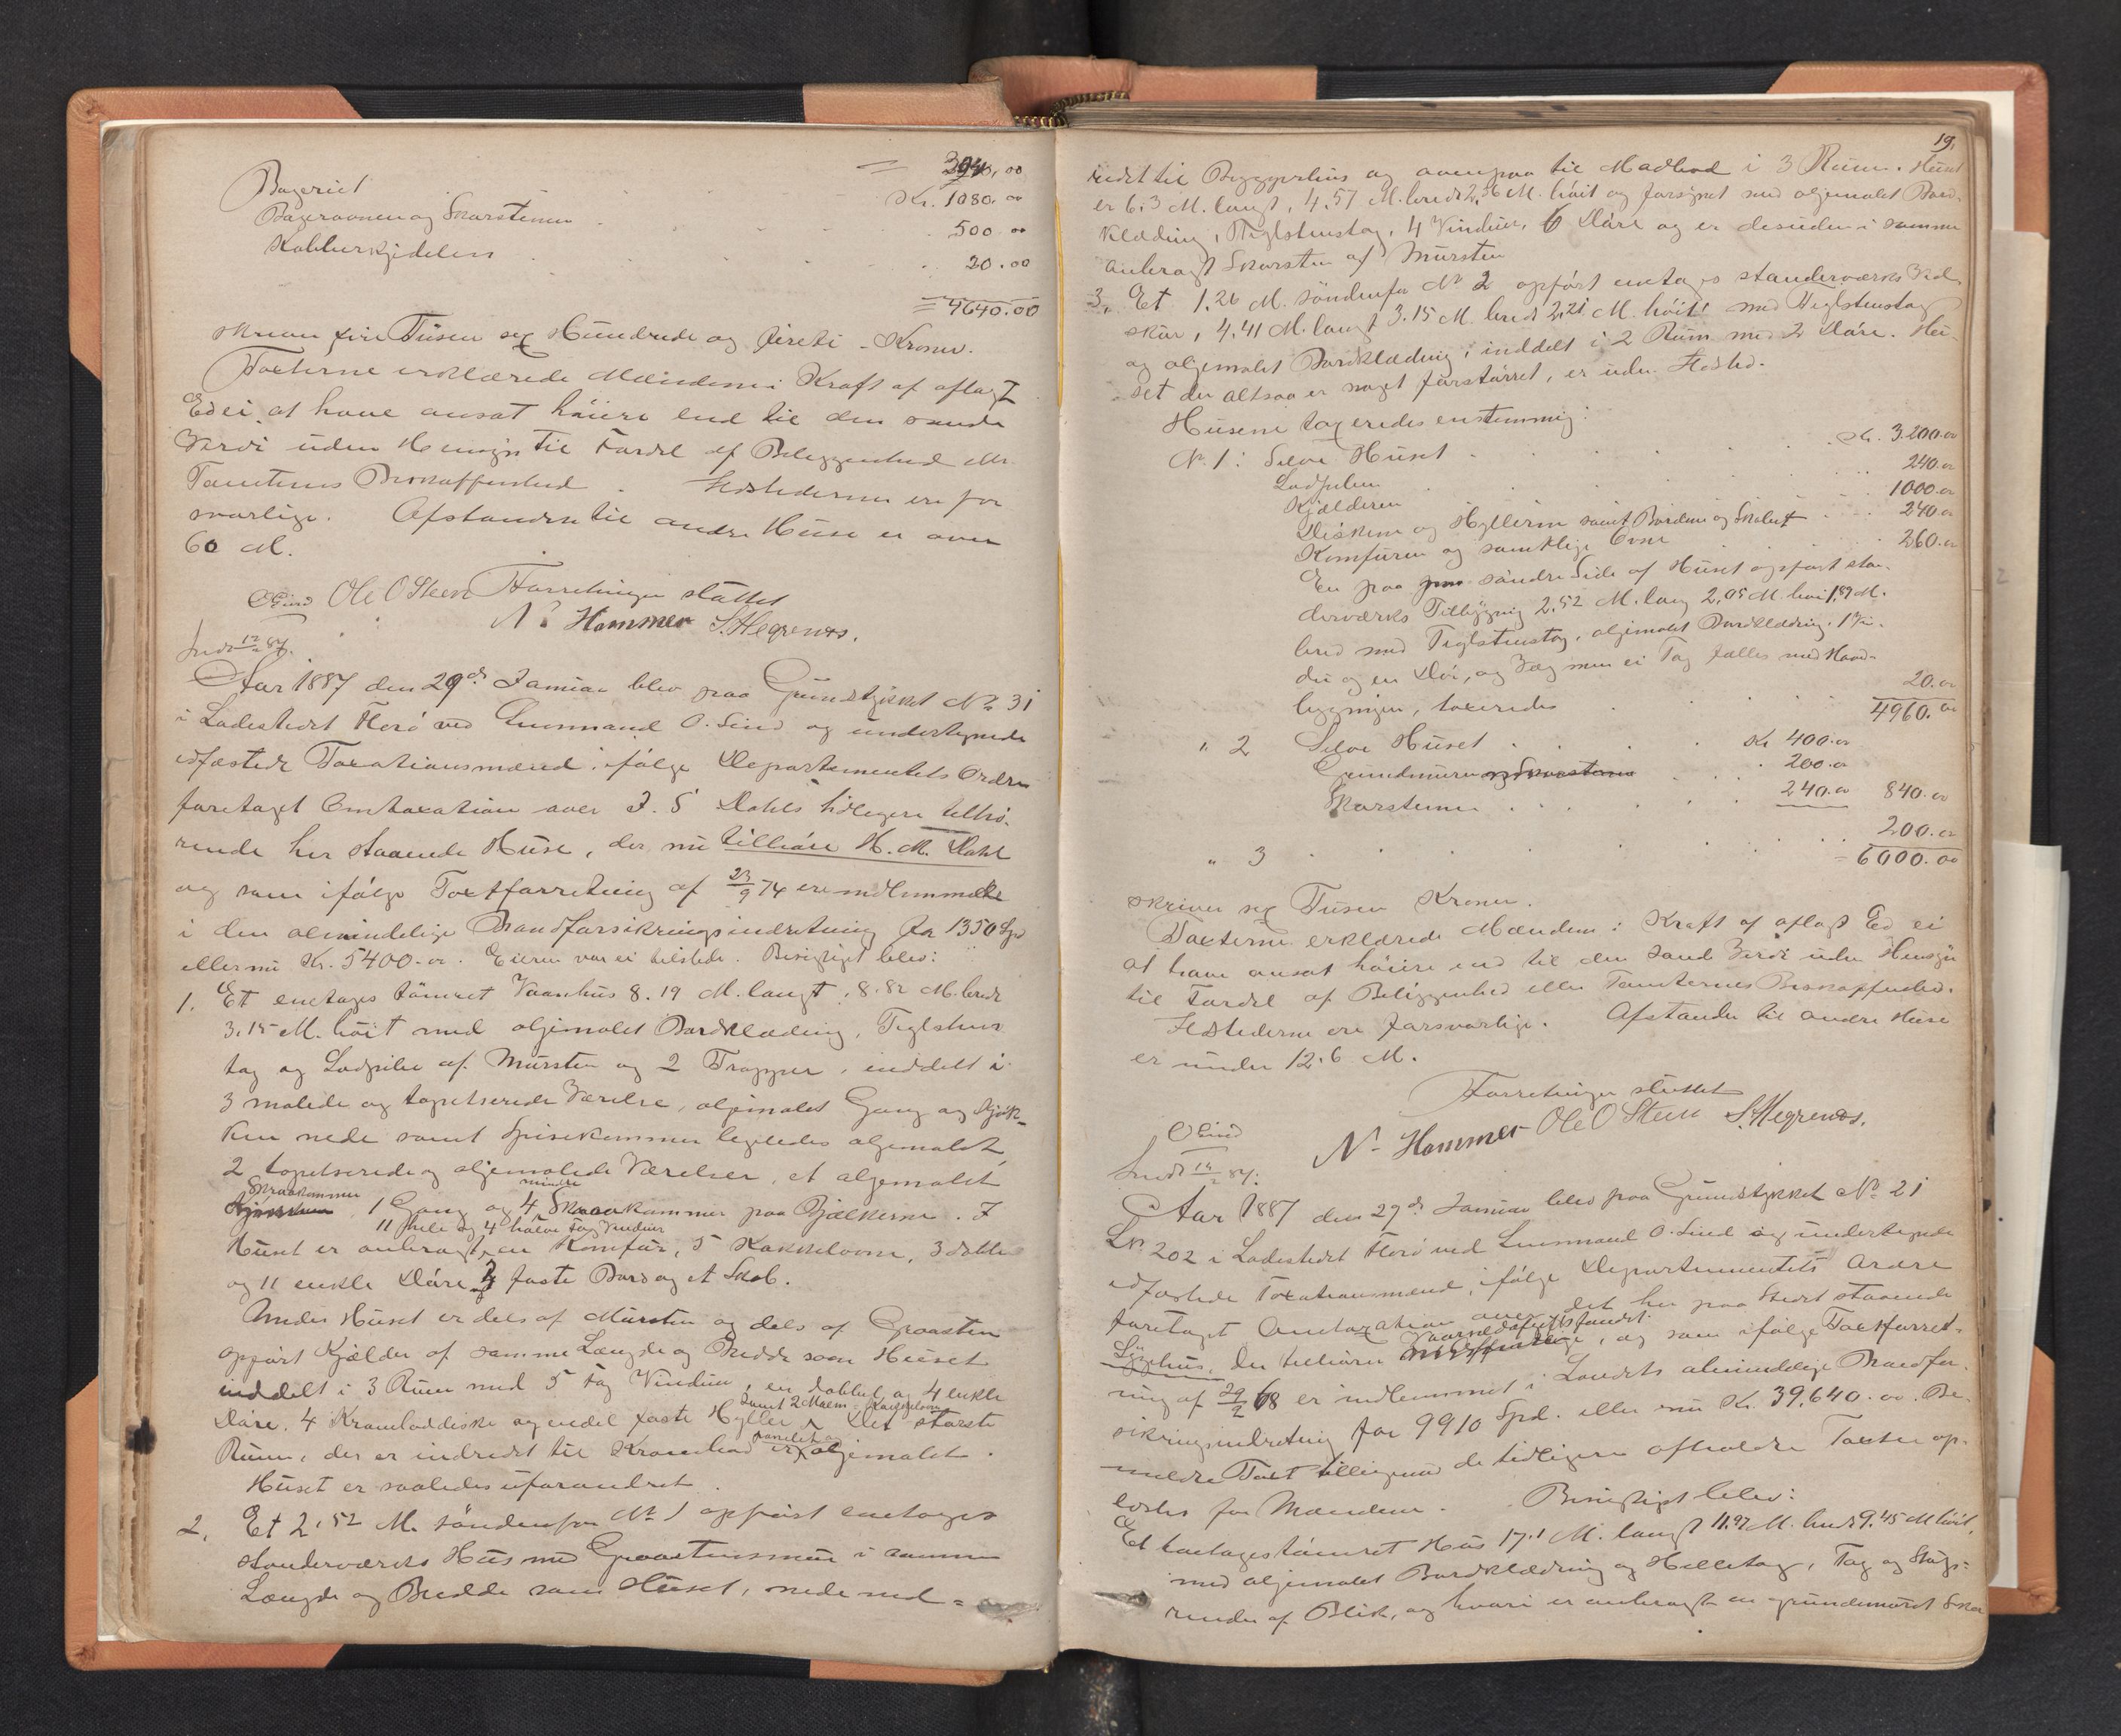 = 3040.00
Bageriet Kr. 1080.00
Bagerovnen og Skorstenen 500.00
Kobberkjedelen 20.00
= 4640.00
skriver fire Tusen sex Hundrede og fireti Kroner.
Taxterne erklærede Mændene i Kraft af aflagt
Ed ei at have ansat høiere end til den sande
Værdi uden Hensyn til Fordel af Beliggenhed ell.
Tomternes Beskaffenhed. Ildstederne ere for
svarlige. Afstanden til andre Huse er over
60 M.
Forretningen sluttet
O Lind Ole O Steen N. Hammer S. Hegrenæs.
Indt 12/2 87.
Aar 1887 den 29de Januar blev paa Grundstykket No 31
i Ladestedet Florø ved Lensmand O. Lind og undertegnede
edfæstede Taxationsmænd ifølge Departementets Ordre
foretaget Omtaxation over J. S. Dahls tidligere tilhø-
rende her staaende Huse, der nu tilhøre H. M. Dahl
og som ifølge Taxtforretning af 23/9 74 ere indlemmede
i den almindelige Brandforsikringsindretning for 1350 Spd
eller nu Kr. 5400.00. Eieren var ei tilstede. Besigtiget blev:
1. Et enetages tømret Vaanhus 8.19 M. langt, 8.82 M. bredt
3.15 M. høit med oljemalet Bordklædning, Teglstens
tag og Lodpibe af Mursten og 2 Trapper, inddelt i
3 malede og tapetserede Værelse, oljemalet Gang og Kjøk-
ken nede samt Spisekammer ligeledes oljemalet,
2 tapetserede og oljemalede Værelser, et oljemalet
Skraakammer mindre
1 Gang og 4 Skraakammer paa Bjælkerne. I
11 hele og 4 halve Fag Vinduer
Huset er anbragt, en Komfur, 5 Kakkelovne, 3 doble
og 11 enkle Døre, 2 faste Bord og et Skab.
Under Huset er dels af Mursten og dels af Graasten
opført Kjælder af samme Længde og Bredde som Huset
inddelt i 3 Rum med 5 Fag Vinduer, en dobbel og 4 enkle
samt 2 Malm Kakkelovne
Døre. 4 Kramboddiske og endel faste Hyller. Det største
panelet og
Rum, der er indredet til Krambod er oljemalet.
Huset er saaledes uforandret.
2. Et 2.52 M. søndenfor No 1 opført enetages
standerværks Hus med Graastensmur i samme
Længde og Bredde som Huset, nede ind-
19.
redet til Bryggerhus og ovenpaa til Madbod i 3 Rum. Huset
er 6.3 M. langt, 4.57 M. bredt 2.36 M. høit og forsynet med oljemalet Bord-
klædning, Teglstenstag, 4 Vinduer, 6 Døre og er desuden i samme
anbragt Skorsten af Mursten
3. Et 1.26 M. søndenfor No 2 opført enetages standerværks Ved-
skur, 4.41 M. langt 3.15 M. bredt 2.21 M. høit med Teglstenstag
og oljemalet Bordklædning, inddelt i 2 Rum med 2 Døre. Hu-
set der altsaa er noget forstørret, er uden Ildsted.
Husene taxeredes enstemmig:
No 1: Selve Huset Kr. 3.200.00
Lodpiben 240.00
Kjælderen 1000.00
Diskene og Hyllerne samt Bordene og Skabet 240.00
Komfuren og samtlige Ovne 260.00
En paa søndre Side af Huset opført stan-
derværks Tilbygning 2.52 M. lang 2.05 M. høi 1.89 M.
bred med Teglstenstag, oljemalet Bordklædning, 1 Vin-
due og en Dør, og Væg men ei Tag fælles med Hoved-
bygningen, taxeredes 20.00
4960.00
" 2 Selve Huset Kr 400.00
Grundmuren og Skorstenen 200.00
Skorstenen 240.00 840.00
" 3 200.00
= 6000.00
skriver sex Tusen Kroner.
Taxterne erklærede Mændene i Kraft af aflagt Ed ei
at have ansat høiere end til den sande Værdi uden Hensyn
til Fordel af Beliggenhed eller Tomternes Beskaffenhed.
Ildstederne ere forsvarlige. Afstanden til andre Huse
er under 12.6 M.
Forretningen sluttet
O Lind N. Hammer Ole O Steen S. Hegrenæs.
Indt 12/2 87.
Aar 1887 den 29de Januar blev paa Grundstykket No 21
L.No 202 i Ladestedet Florø ved Lensmand O. Lind og undertegnede
edfæstede Taxationsmænd, ifølge Departementets Ordre
foretaget Omtaxation over det her paa Stedet staaende
Vaarsildsfiskefondet
Sygehus, der tilhører, og som ifølge Taxtforret-
ning af 29/2 68 er indlemmet i Landets almindelige Brandfor-
sikringsindretning for 9910 Spd. eller nu Kr. 39.640.00. Be-
meldte Taxt tilligemed de tidligere afholdte Taxter op-
læstes for Mændene. Besigtiget blev:
Et toetages tømret Hus 17.1 M. langt 11.97 M. bredt 9.45 M høit,
med oljemalet Bordklædning og Helletag, Tag og Slags-
render af Blik, og hvori er anbragt en grundmuret Skor